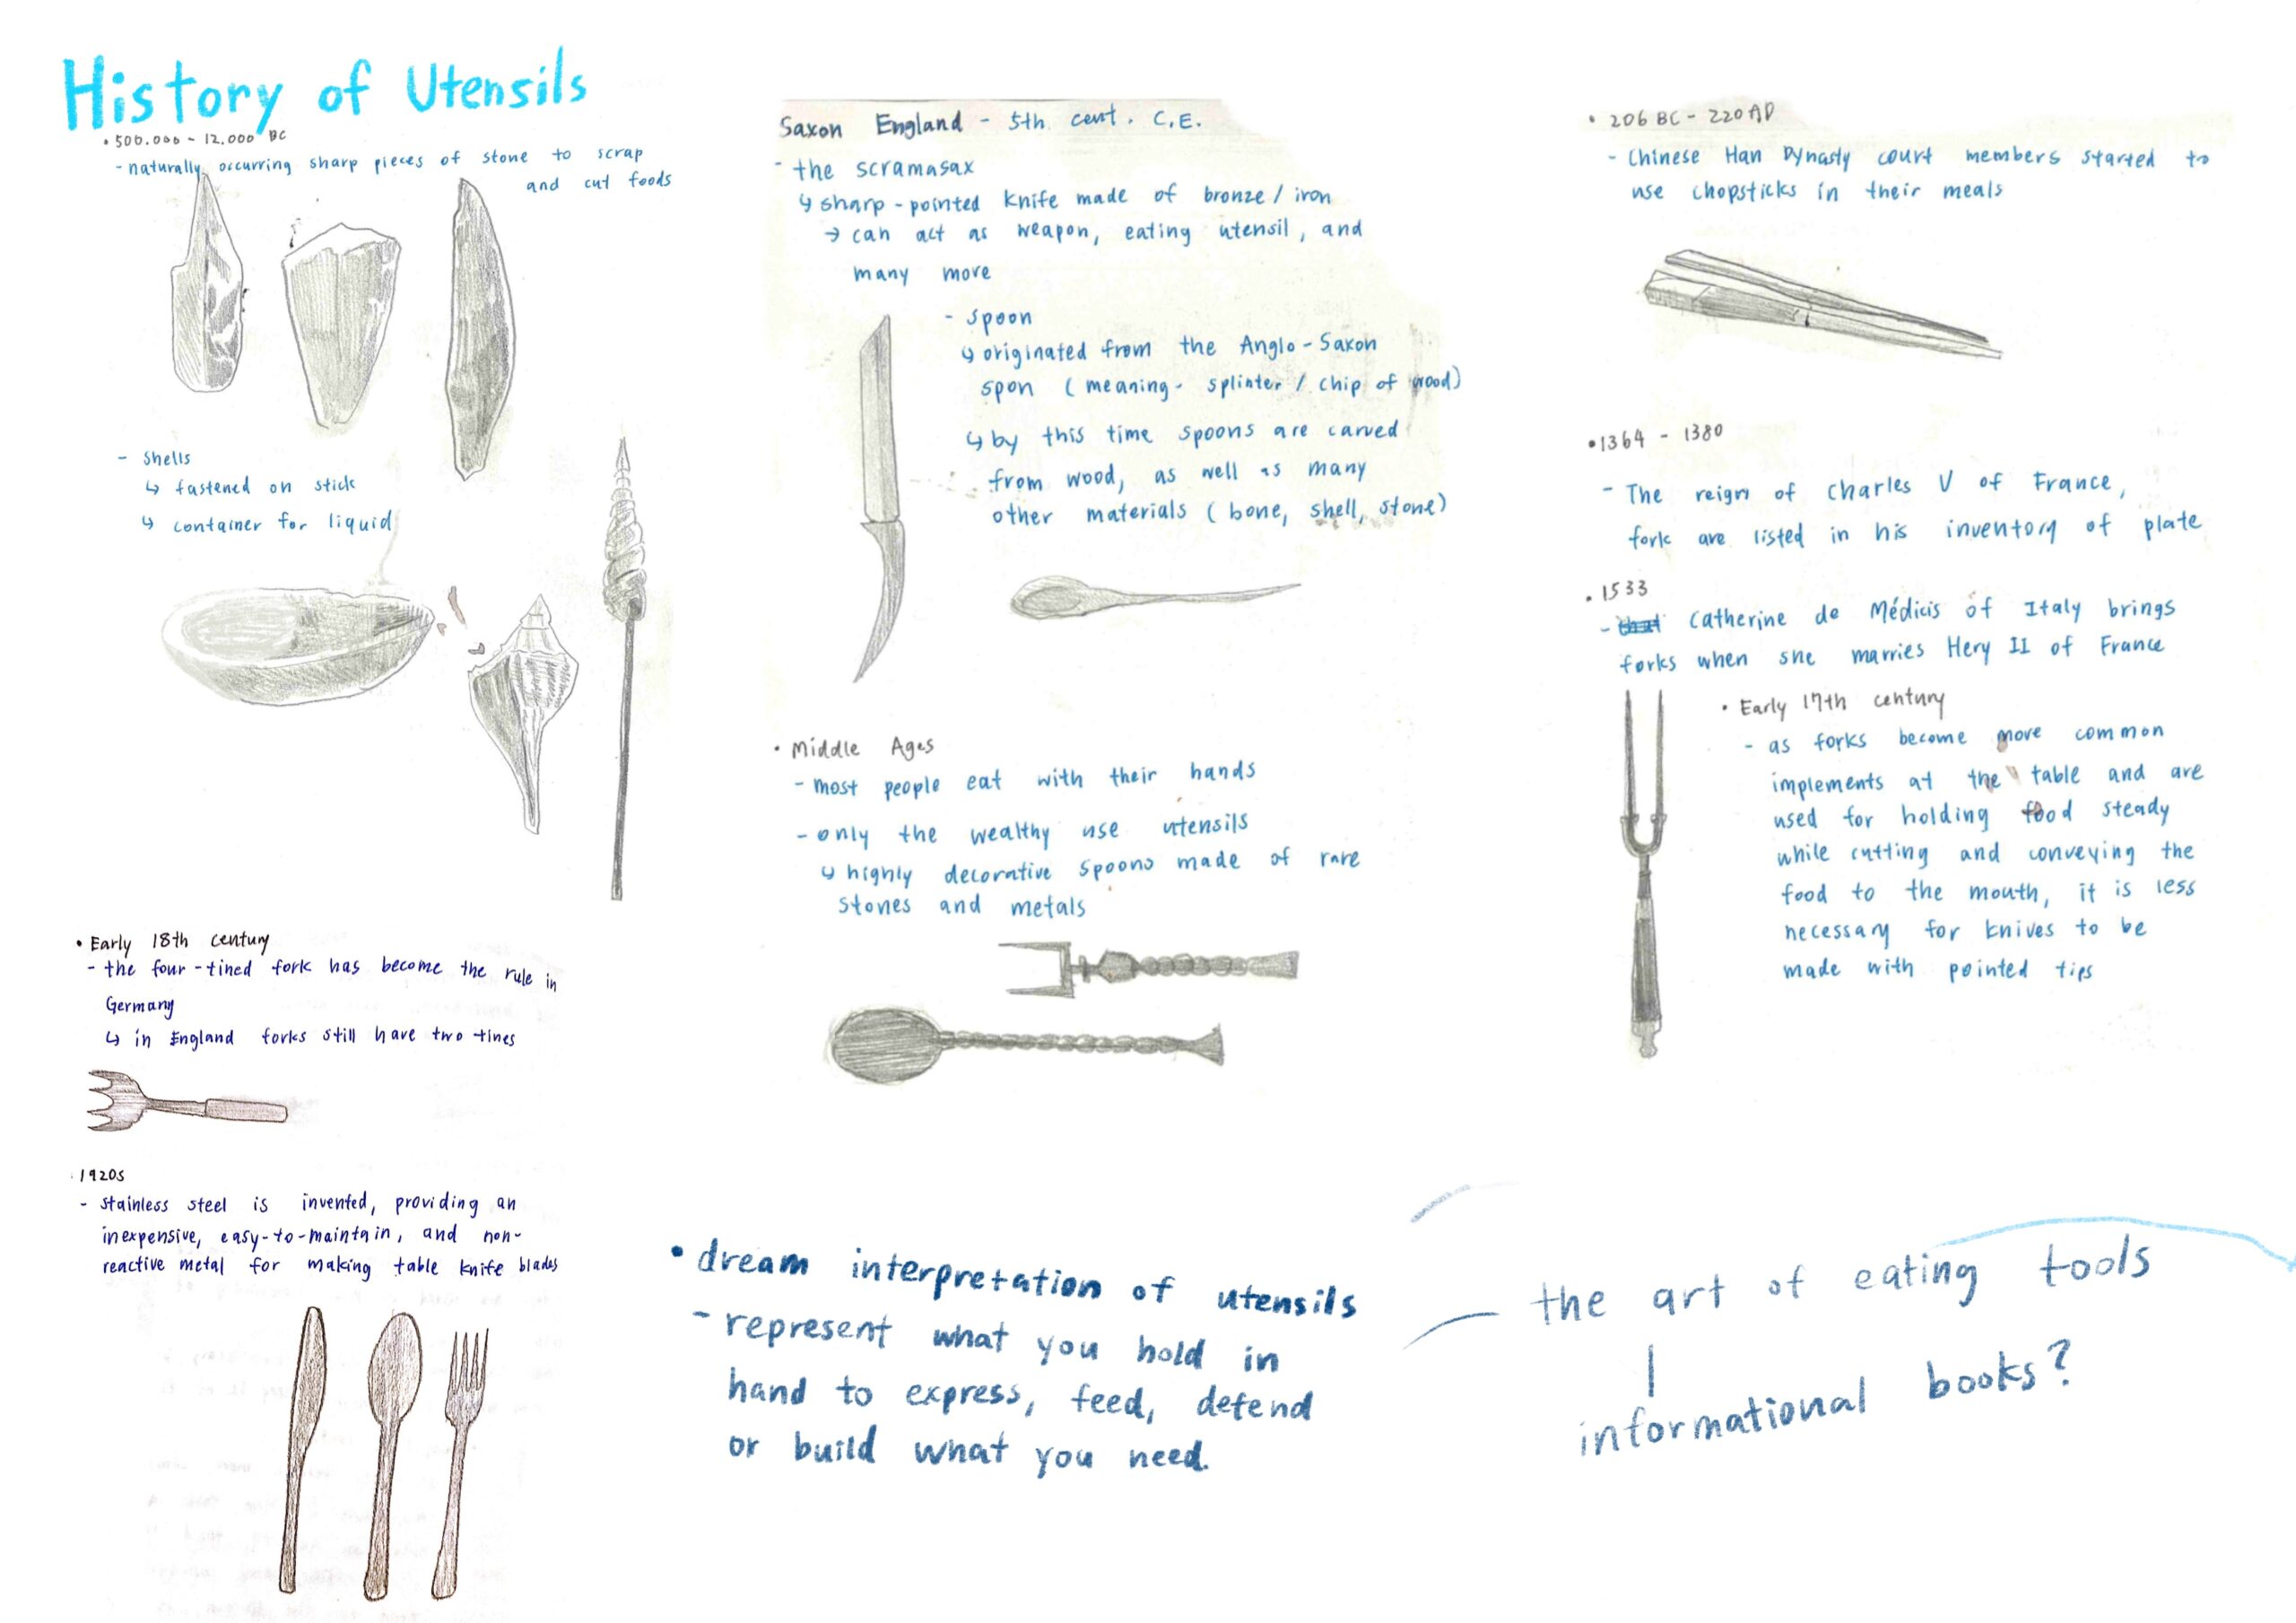 History of Utensils
• 500.000 - 12.000 BC
- naturally occurring sharp pieces of stone to scrap
and cut foods
- Shells
↳ fastened on stick
↳ container for liquid
• Early 18th century
- the four-tined fork has become the rule in
Germany
↳ in England forks still have two tines
· 1920s
- stainless steel is invented, providing an
inexpensive, easy-to-maintain, and non-
reactive metal for making table knife blades
Saxon England - 5th cent. C.E.
- the scramasax
↳ sharp-pointed knife made of bronze / iron
→ can act as weapon, eating utensil, and
many more
- spoon
↳ originated from the Anglo-Saxon
spon (meaning- splinter / chip of wood)
↳ by this time spoons are carved
from wood, as well as many
other materials (bone, shell, stone)
• Middle Ages
- most people eat with their hands
- only the wealthy use utensils
↳ highly decorative spoons made of rare
stones and metals
• dream interpretation of utensils
- represent what you hold in
hand to express, feed, defend
or build what you need.
• 206 BC - 220 AD
- Chinese Han Dynasty court members started to
use chopsticks in their meals
• 1364 - 1380
- The reign of Charles V of France,
fork are listed in his inventory of plate
• 1533
- Catherine de Médicis of Italy brings
forks when she marries Hery II of France
• Early 17th century
- as forks become more common
implements at the table and are
used for holding food steady
while cutting and conveying the
food to the mouth, it is less
necessary for knives to be
made with pointed tips
the art of eating tools
informational books?